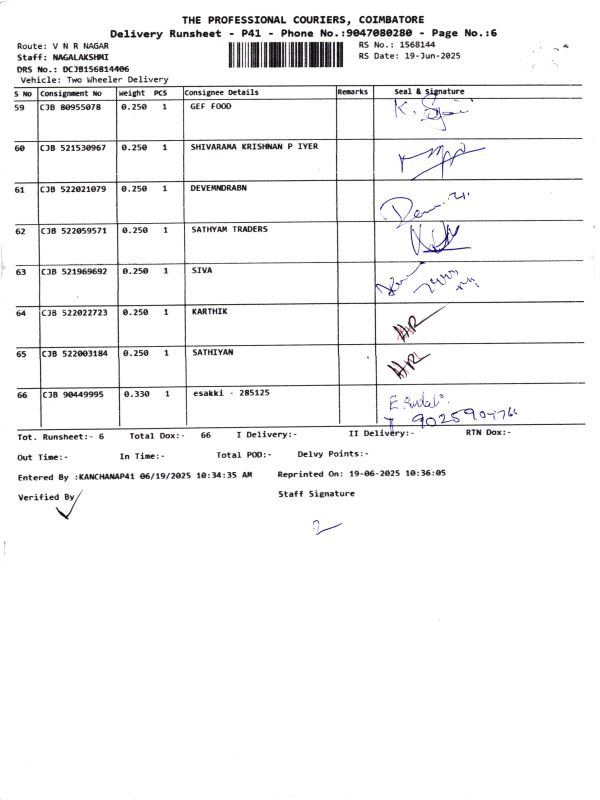 THE PROFESSIONAL COURIERS, COIMBATORE
Delivery Runsheet - P41 - Phone No.:9047080280 - Page No.:6
Route: V N R NAGAR
RS No.: 1568144
Staff: NAGALAKSHMI
RS Date: 19-Jun-2025
DRS No.: DCJB156814406
Vehicle: Two Wheeler Delivery
S No Consignment No Weight PCS Consignee Details Remarks Seal & Signature
59 CJB 80955078 0.250 1 GEF FOOD
60 CJB 521530967 0.250 1 SHIVARAMA KRISHNAN P IYER
61 CJB 522021079 0.250 1 DEVEMNDRABN
62 CJB 522059571 0.250 1 SATHYAM TRADERS
63 CJB 521969692 0.250 1 SIVA
64 CJB 522022723 0.250 1 KARTHIK
65 CJB 522003184 0.250 1 SATHIYAN
66 CJB 90449995 0.330 1 esakki - 285125
Tot. Runsheet:- 6 Total Dox:- 66 I Delivery:- II Delivery:- RTN Dox:-
Out Time:- In Time:- Total POD:- Delvy Points:-
Entered By :KANCHANAP41 06/19/2025 10:34:35 AM Reprinted On: 19-06-2025 10:36:05
Verified By Staff Signature
2